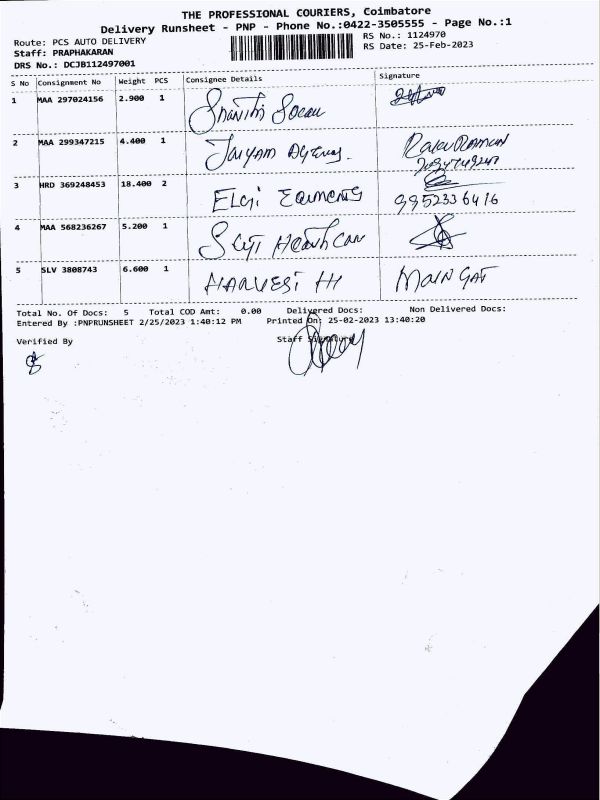 THE PROFESSIONAL COURIERS, Coimbatore
Delivery Runsheet - PNP - Phone No.:0422-3505555 - Page No.:1
Route: PCS AUTO DELIVERY RS No.: 1124970
Staff: PRAPHAKARAN RS Date: 25-Feb-2023
DRS No.: DCJB112497001
S No Consignment No Weight PCS Consignee Details Signature
1 MAA 297024156 2.900 1 Shanthi
2 MAA 299347215 4.400 1
3 HRD 369248453 18.400 2 9952336416
4 MAA 568236267 5.200 1
5 SLV 3808743 6.600 1 HARVEST HI MAIN GAT
Total No. Of Docs: 5 Total COD Amt: 0.00 Delivered Docs: Non Delivered Docs:
Entered By :PNPRUNSHEET 2/25/2023 1:40:12 PM Printed On: 25-02-2023 13:40:20
Verified By Staff Signature